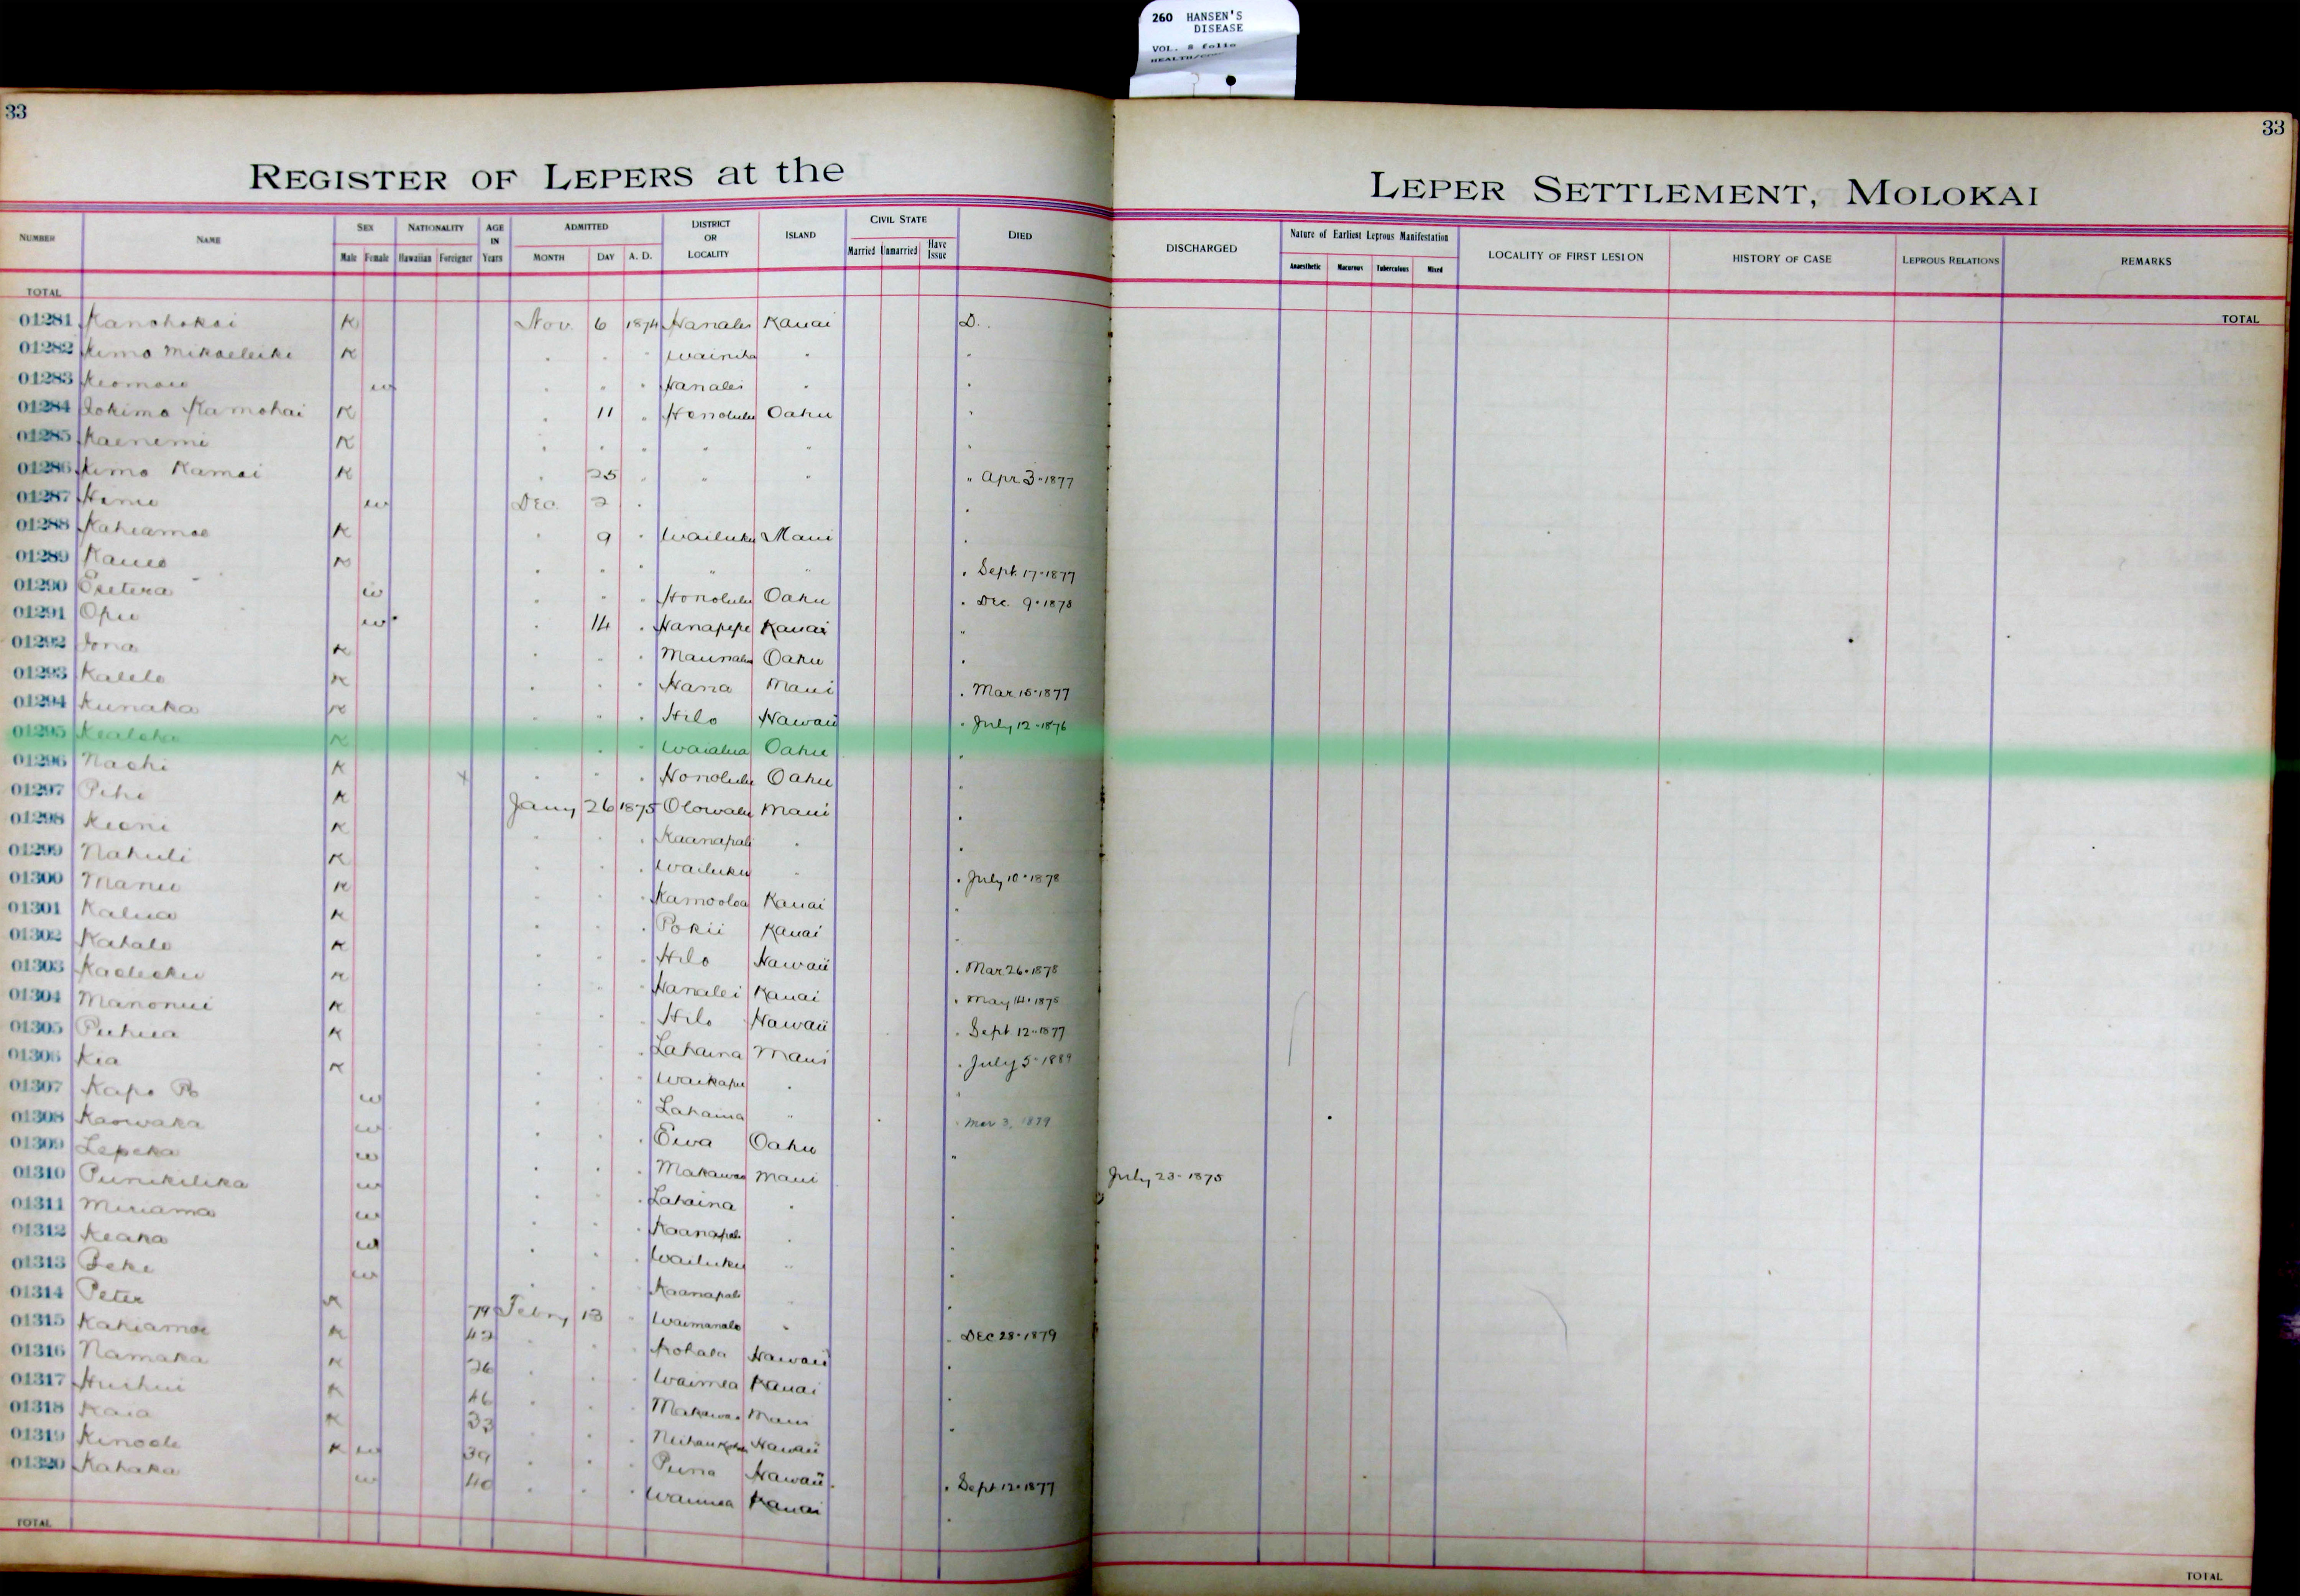 260 HANSEN'S
DISEASE
VOL. 8 folio
33
33
REGISTER OF LEPERS at the LEPER SETTLEMENT, MOLOKAI
NUMBER NAME SEX NATIONALITY AGE IN Years ADMITTED DISTRICT OR LOCALITY ISLAND CIVIL STATE DIED DISCHARGED Nature of Earliest Leprous Manifestation LOCALITY OF FIRST LESION HISTORY OF CASE LEPROUS RELATIONS REMARKS
Male Female Hawaiian Foreigner MONTH DAY A. D. Married Unmarried Have Issue Anaesthetic Macurous Tuberculous Mixed
TOTAL TOTAL
01281 Kanohokai K Nov. 6 1874 Hanalei Kauai D.
01282 Kimo Mikaeleike K " " " Wainiha " "
01283 Keomaui w " " " Hanalei " "
01284 Iokimo Kamohai K " 11 " Honolulu Oahu "
01285 Kaenemi K " " " " " "
01286 Kimo Kamai K " 25 " " " " Apr 3-1877
01287 w Dec. 2 " "
01288 Kahiamoe K " 9 " Wailuku Maui "
01289 K " " " " " " Sept. 17-1877
01290 w " " " Honolulu Oahu " Dec. 9-1878
01291 Opu w " 14 " Hanapepe Kauai "
01292 Iona K " " " Maunalua Oahu "
01293 Kalelo K " " " Hana Maui " Mar 15-1877
01294 Kunaka K " " " Hilo Hawaii " July 12-1876
01295 Kealoha K " " Waialua Oahu "
01296 Naohi K x " " " Honolulu Oahu "
01297 Pihi K Jany 26 1875 Olowalu Maui "
01298 Keoni K " " " Kaanapali " "
01299 Nahuli K " " " Wailuku " " July 10-1878
01300 Manu K " " " Kamooloa Kauai "
01301 Kalua K " " " Pokii Kauai "
01302 Kahalo K " " " Hilo Hawaii " Mar 26-1878
01303 K " " " Hanalei Kauai " May 14-1875
01304 Manonui K " " " Hilo Hawaii " Sept 12-1877
01305 Puhua K " " " Lahaina Maui " July 5-1889
01306 Kia K " " " Waikapu " "
01307 Kapo w " " " Lahaina " " Mar 3, 1879
01308 Kaowaka w " " " Ewa Oahu "
01309 Lepeka w " " " Makawao Maui July 23-1875
01310 Punikilika w " " " Lahaina " "
01311 Miriama w " " " Kaanapali " "
01312 Keaka w " " " Wailuku " "
01313 Beke w " " " Kaanapali " "
01314 Peter K 79 Febry 13 " Waimanalo " " Dec 28-1879
01315 Kahiamoe K 42 " " " Kohala Hawaii "
01316 Namaka K 26 " " " Waimea Kauai "
01317 Huihui K 46 " " " Makawao Maui "
01318 Kaia K 33 " " " Hawaii
01319 Kinoole K w 39 " " " Puna Hawaii " Sept 12-1877
01320 Kahaka w 40 " " " Waimea Kauai "
TOTAL TOTAL